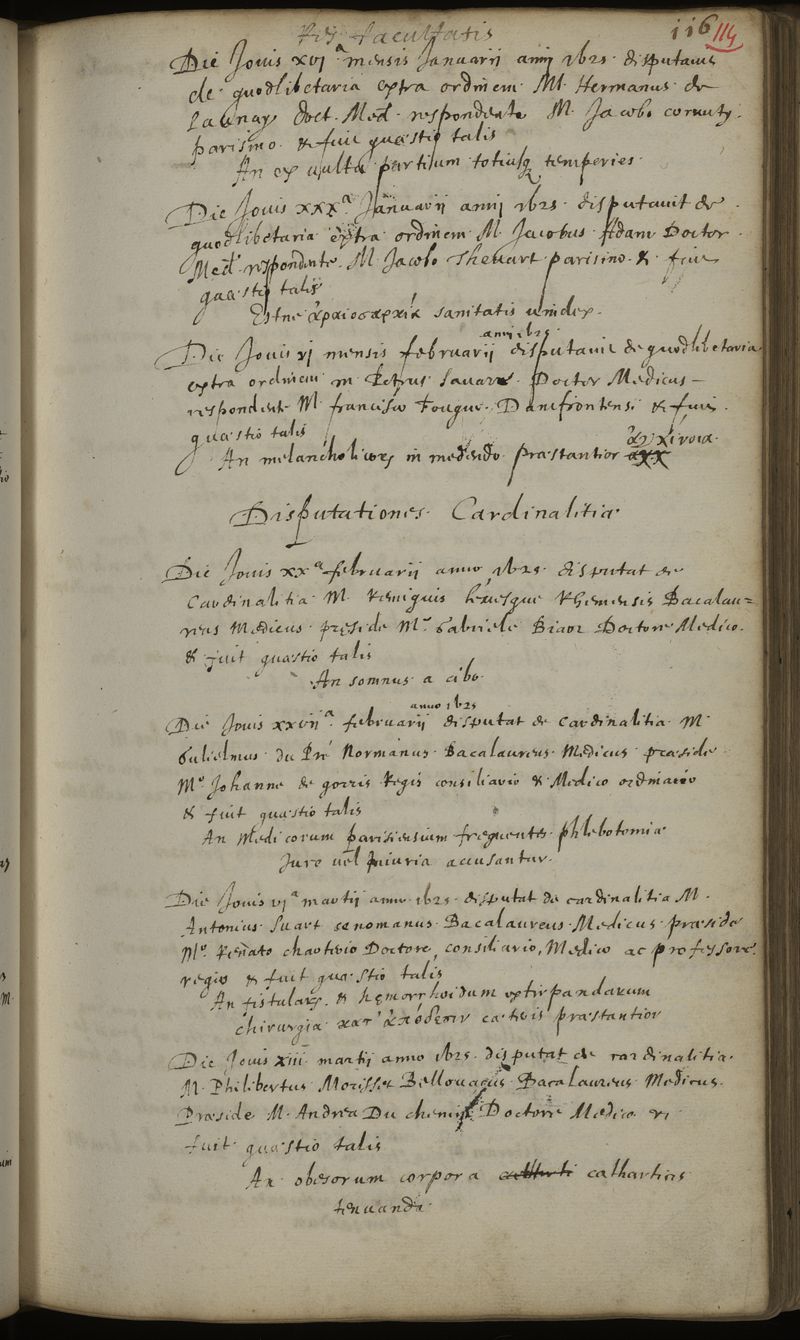 Res facultatis 116 114
Die Jovis xvj a mensis Januarij anni 1625 disputavit
de quodlibetaria extra ordinem M. Hermanus de
Launay doct. Med. respondente M. Jacobo cornuty
parisino & fuit quæstio talis
An ex vultu partium totiusq temperies
Die Jovis xxx a Januarij anni 1625 disputavit de
quodlibetaria extra ordinem M. Jacobus Adam Doctor
Med. respondente M. Jacobo Thevart parisino & fuit
quæstio talis
Estne ἀραιοσαρκία sanitatis vindex
anni 1625
Die Jovis vj mensis februarij disputavit de quodlibetaria
extra ordinem M Petrus Savare Doctor Medicus
respondente M. francisco Donfrontensi & fuit
quæstio talis ἀγχίνοια
An melancholicorū in medendo præstantior
Disputationes Cardinalitiæ
Die Jovis xx a februarij anno 1625 disputat de
Cardinalitia M. Remigius Rhemensis Bacalau=
reus Medicus præside Mro Gabriele Doctore Medico
& fuit quæstio talis
An somnus a cibo
anno 1625
Die Jovis xxvij a februarij disputat de cardinalitia M
Gulielmus du Pré Normanus Bacalaureus Medicus præside
Mo Johanne de gorris Regis consiliario & Medico ordinario
& fuit quæstio talis
An Medicorum parisiensium frequentes phlebotomiæ
Jure vel Iniuria accusantur
Die Jovis vj a martij anno 1625 disputat de cardinalitia M.
Antonius cenomanus Bacalaureus Medicus præside
Mo Renato chartivio Doctore, consiliario, Medico ac professore
regio & fuit quæstio talis
An fistularū & hemorrhoidum extirpandarum
chirurgia κατ' præstantior
Die Jovis xiii martij anno 1625 disputat de cardinalitia
M. Philibertus Morisset Bellovacus Bacalaureus Medicus
Præside M. Andrea Du chemin Doctore Medico et
fuit quæstio talis
An obesorum corpora catharticis
tenuanda